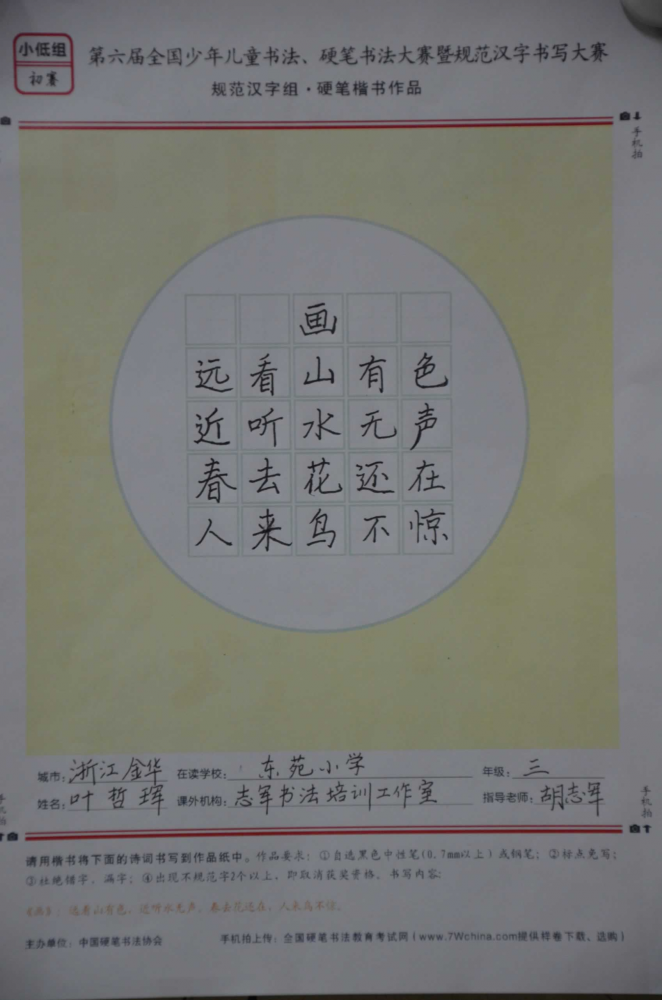 小低组
初赛
第六届全国少年儿童书法、硬笔书法大赛暨规范汉字书写大赛
规范汉字组·硬笔楷书作品
手机拍
画
远看山有色
近听水无声
春去花还在
人来鸟不惊
城市：浙江金华 在读学校：东苑小学 年级：三
姓名：叶哲珲 课外机构：志军书法培训工作室 指导老师：胡志军
手机拍
手机拍
请用楷书将下面的诗词书写到作品纸中。作品要求：①自选黑色中性笔(0.7mm以上)或钢笔；②标点免写；
③杜绝错字、漏字；④出现不规范字2个以上、即取消获奖资格。书写内容：
《画》：远看山有色，近听水无声。春去花还在，人来鸟不惊。
主办单位：中国硬笔书法协会 手机拍上传：全国硬笔书法教育考试网（www.7Wchina.com提供样卷下载、选购）